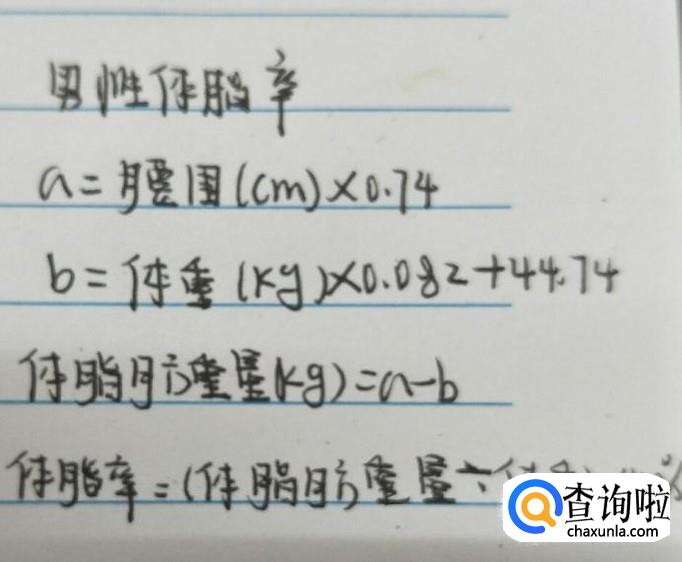 男性体脂率
a=腰围(cm)×0.74
b=体重(kg)×0.082+44.74
体脂肪重量(kg)=a-b
体脂率=(体脂肪重量÷体
查询啦
chaxunla.com